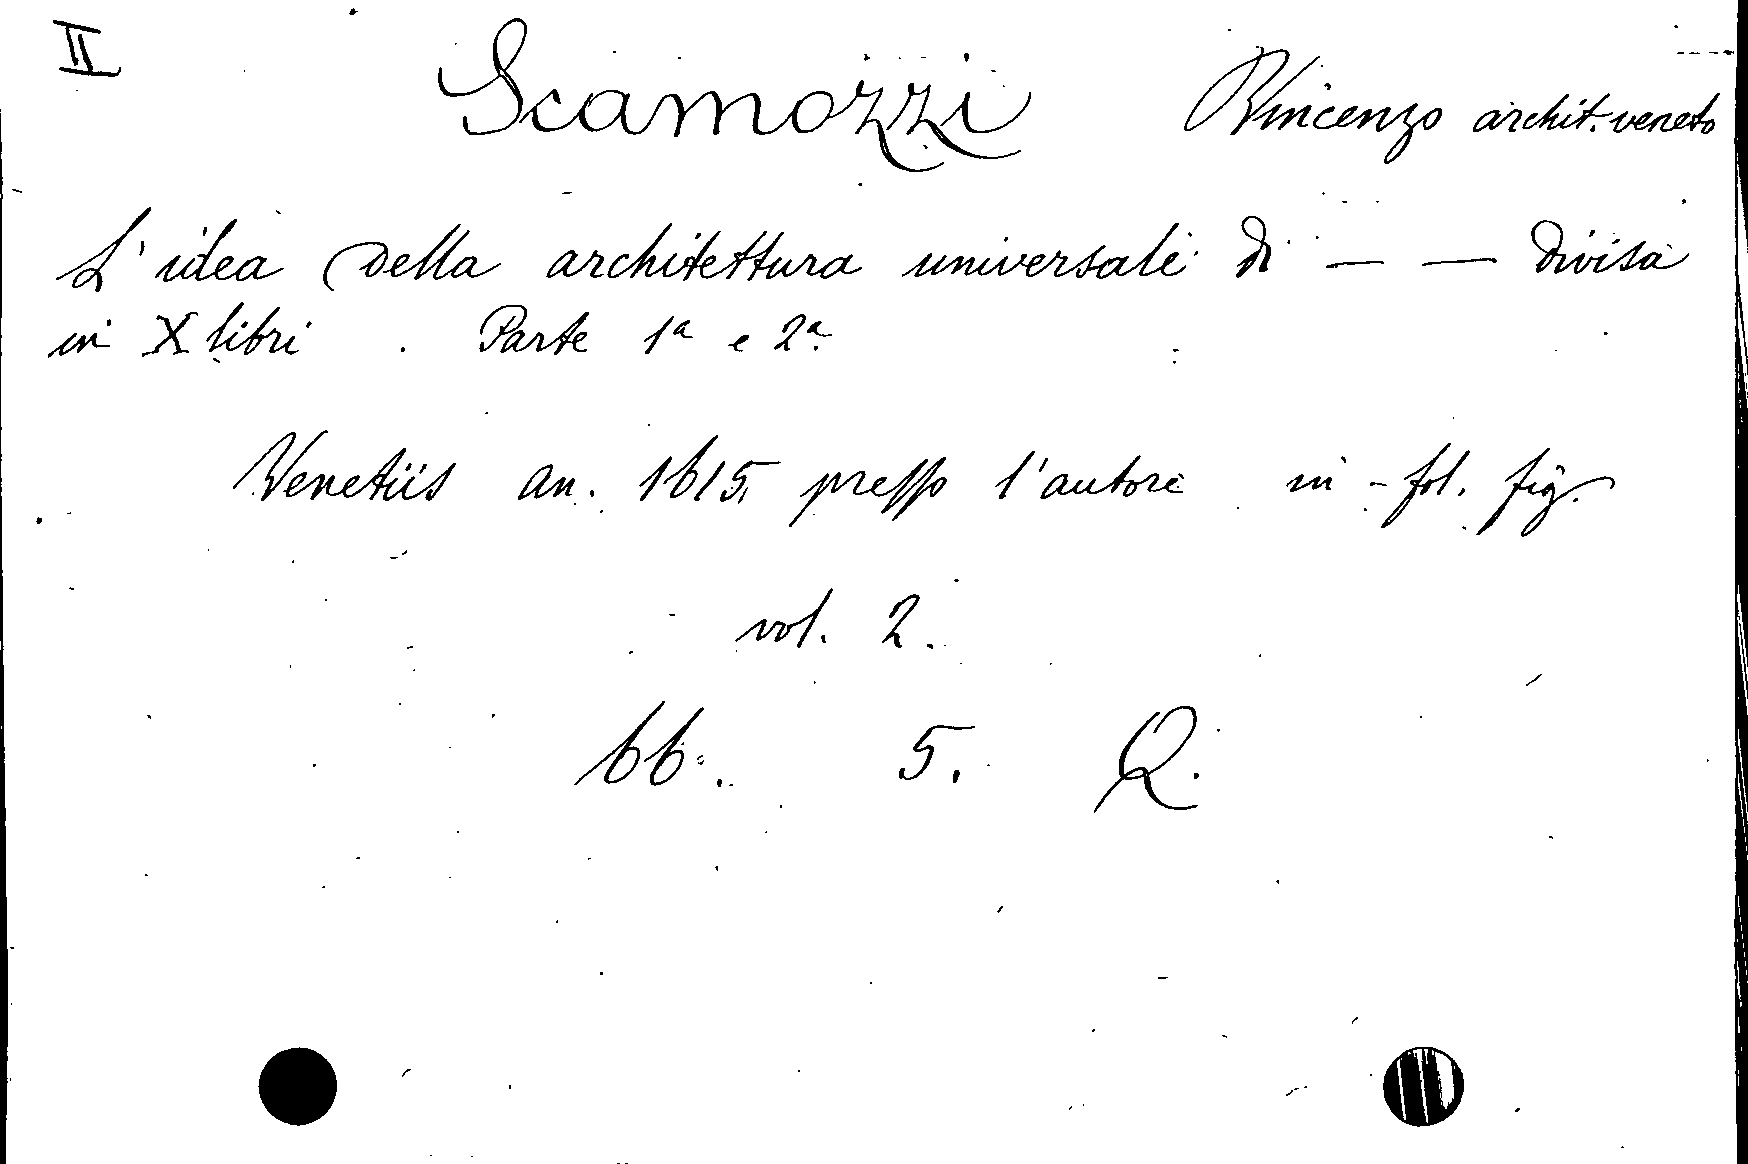 II
Scamozzi Vincenzo archit. veneto
L'idea della architettura universale di — — divisa
in X libri. Parte 1ª e 2ª.
Venetiis an. 1615. presso l'autore in-fol. fig.
vol. 2.
66. 5. Q.